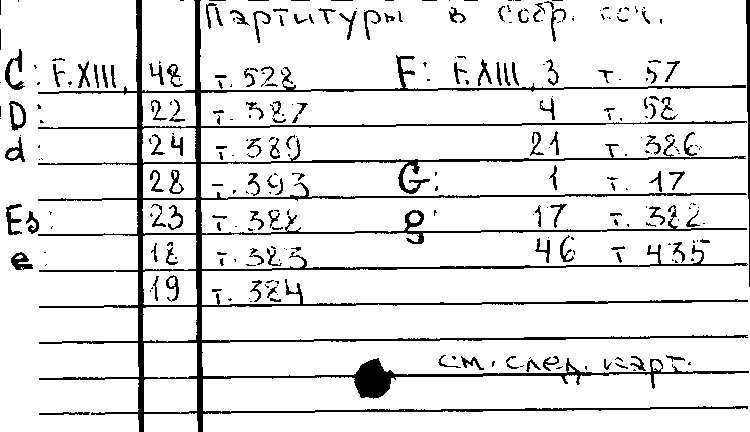 Партитуры в собр. соч.
C: F.XIII, 48 т. 528 F: F.XIII, 3 т. 57
D: 22 т. 387 4 т. 58
d: 24 т. 389 21 т. 386
28 т. 393 G: 1 т. 17
Es: 23 т. 388 g: 17 т. 382
e: 18 т. 383 46 т 435
19 т. 384
см. след. карт.